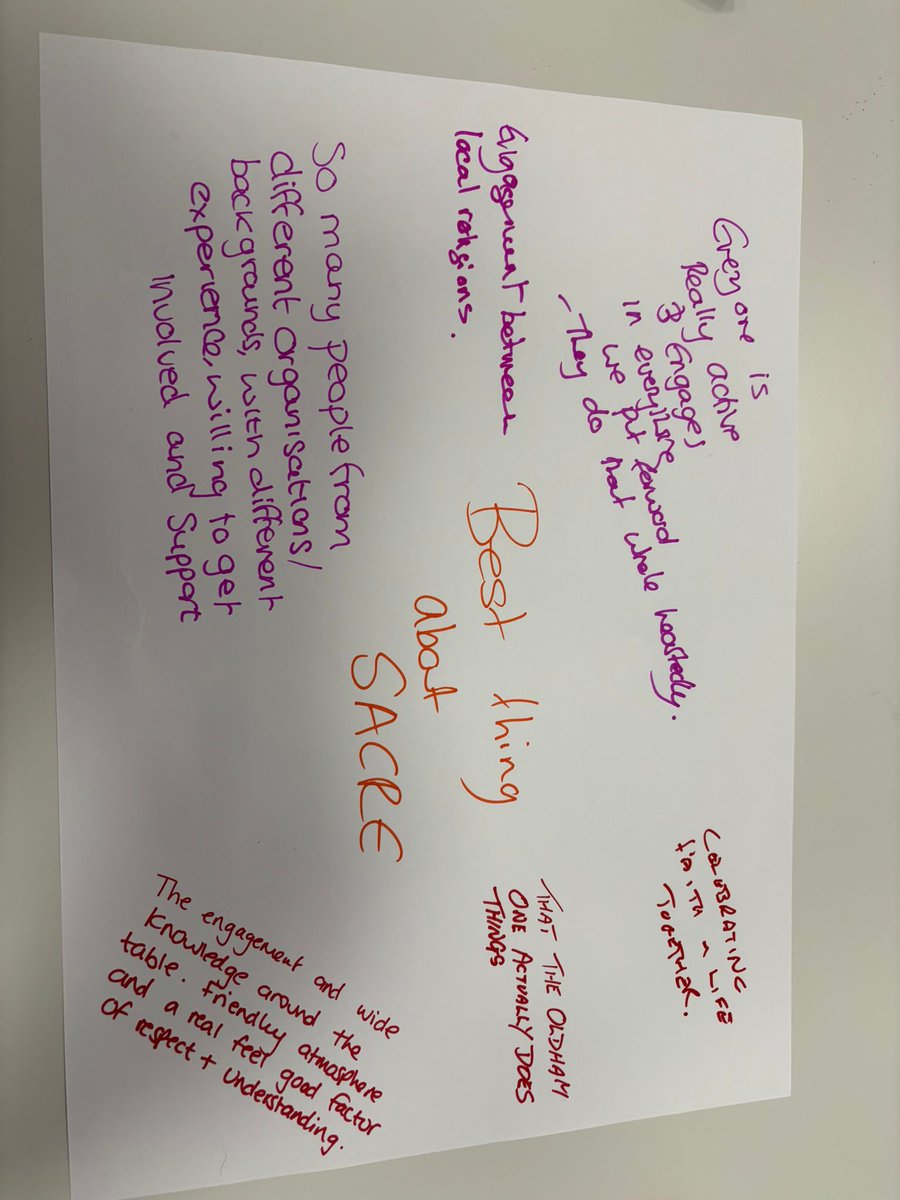 Every one is
Really active
& Engages
in everything
we put forward
- They do that whole heartedly.
CELEBRATING
FAITH & LIFE
TOGETHER.
Engagement between
local religions.
Best thing
about
SACRE
THAT THE OLDHAM
ONE ACTUALLY DOES
THINGS
So many people from
different organisations/
backgrounds, with different
experience, willing to get
involved and support
The engagement and wide
knowledge around the
table. Friendly atmosphere
and a real feel good factor
of respect + understanding.